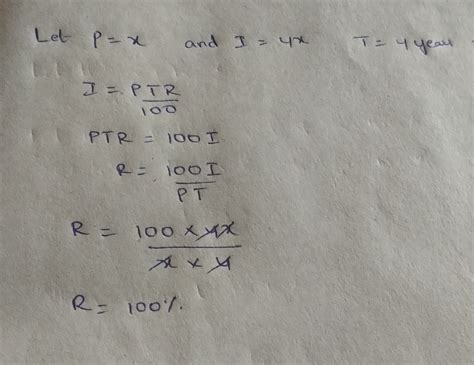 Let P = x and I = 4x T = 4 year
I = PTR/100
PTR = 100 I
R = 100 I/PT
R = 100 × 4x/x × 4
R = 100%.